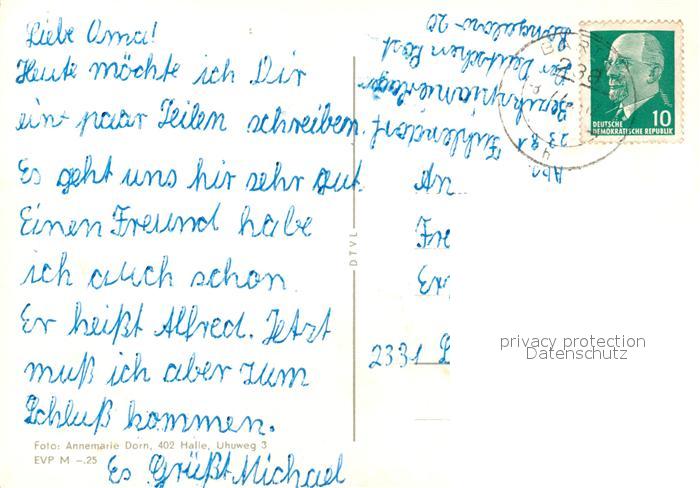 Liebe Oma!
Heute möchte ich Dir
ein paar Zeilen schreiben.
Es geht uns hir sehr gut.
Einen Freund habe
ich auch schon.
Er heißt Alfred. Jetzt
muß ich aber zum
Schluß kommen.
Es Grüßt Michael
Foto: Annemarie Dorn, 402 Halle, Uhuweg 3
EVP M –.25
DTVL
Abs.
2381 Fuhlendorf
der Deutschen Post
BART
10
DEUTSCHE
DEMOKRATISCHE REPUBLIK
An
2331
privacy protection
Datenschutz